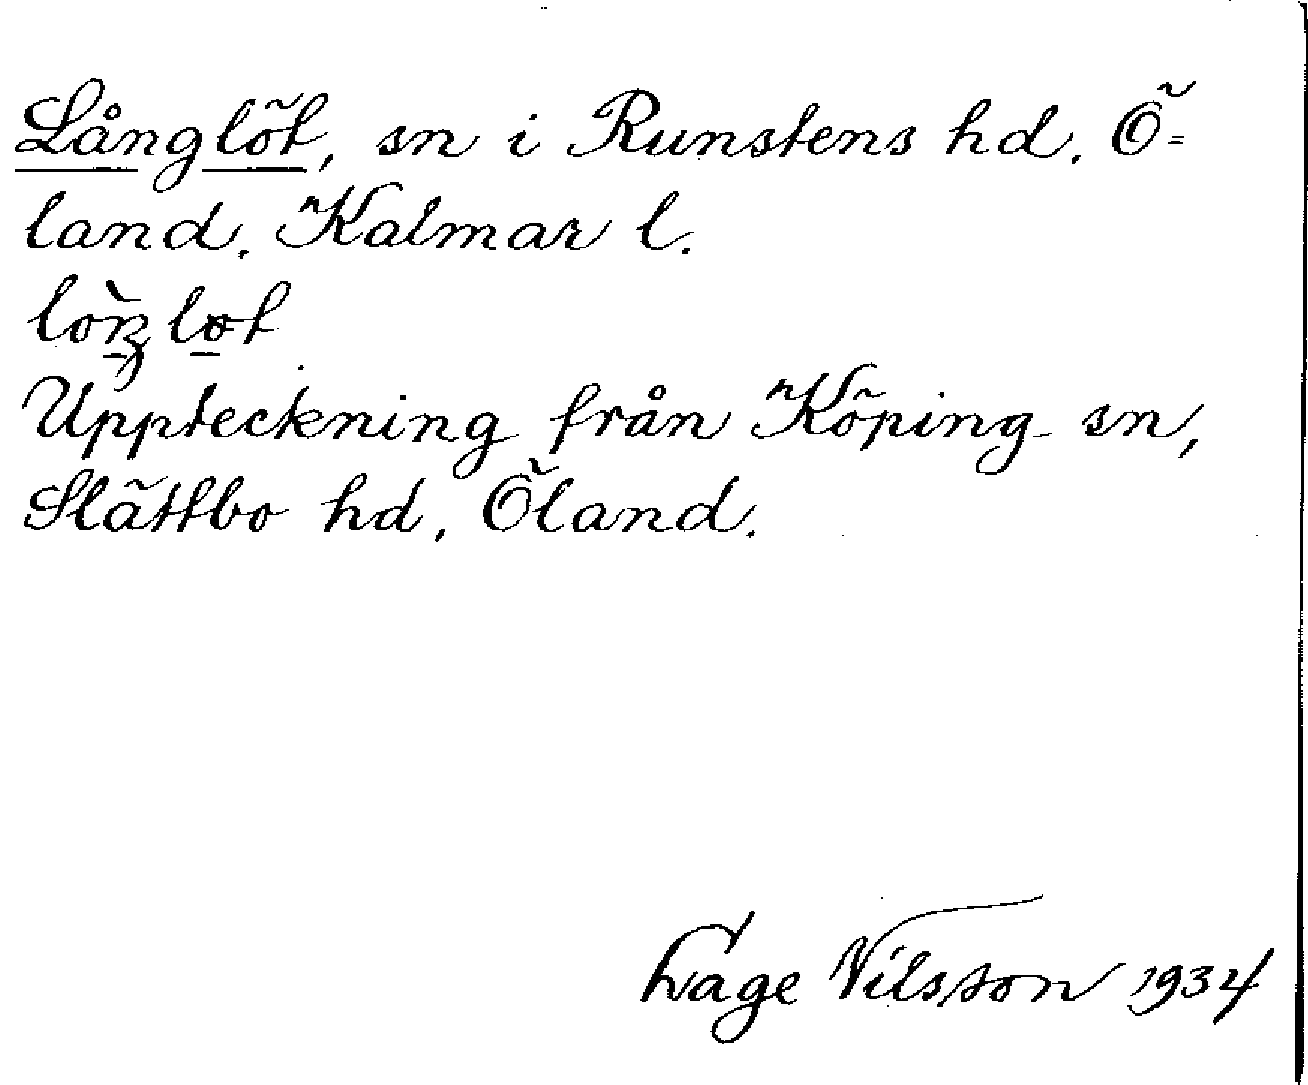 Långlöt, sn i Runstens hd. Ö=
land. Kalmar l.
Uppteckning från Köping sn,
Slättbo hd, Öland.
Nilsson 1934